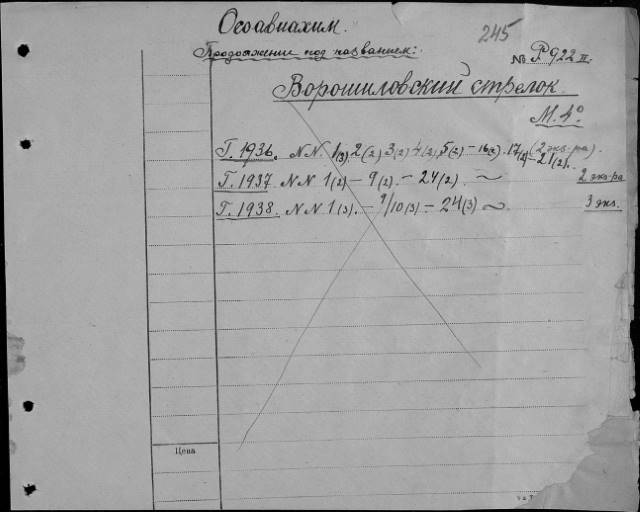 Осоавиахим.
245
Продолжение под названием:
№ Р922 II.
Ворошиловский стрелок
М. 4°
Г. 1936. NN. 1(3), 2(2) 3(2) 4(2), 5(2) – 16(2). 17(2) – 21(2). (2 экз-ра).
Г. 1937. NN 1(2) – 9(2). – 24(2). ~ 2 экз-ра
Г. 1938. NN 1(3). – 9/10(3) – 24(3) ~ 3 экз.
Цена